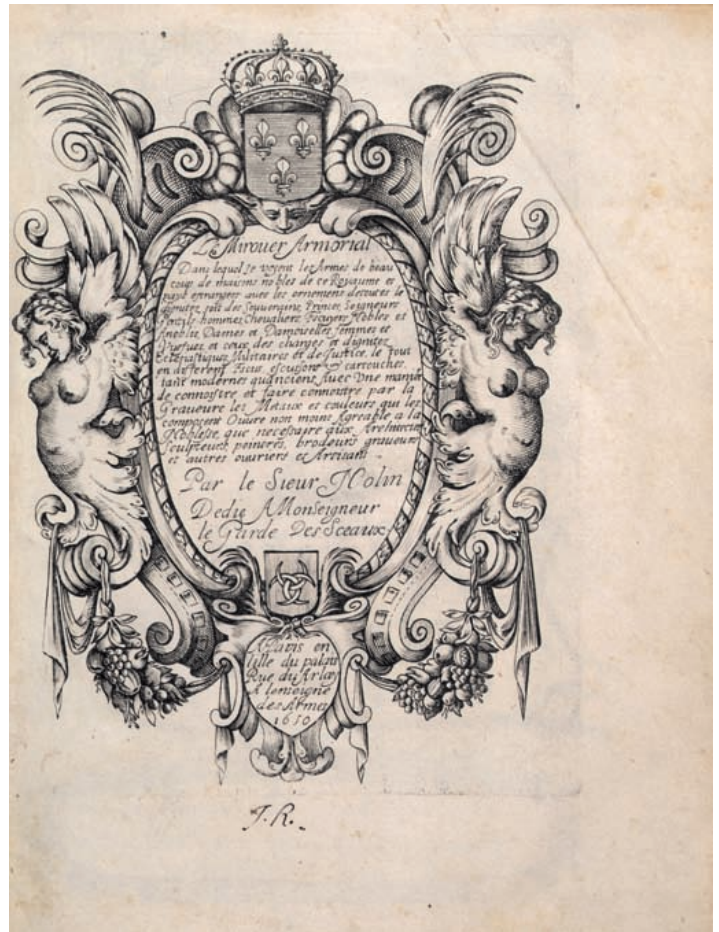 Le Mirouer Armorial
Dans lequel se voyent les Armes de beau
coup de maisons nobles de ce Royaume et
pays estrangers avec les ornemens de toutes le
dignitez soit des Souverains Princes Seigneurs
hommes Chevaliers Escuyers Nobles et
Anoblis Dames et Damoiselles femmes et
et ceux des charges et dignitez
Eclesiastiques Militaires et de Justice, le tout
en differens Escus, escussons et cartouches,
tant modernes qu'anciens, Avec Vne maniere
de connoistre et faire connoistre par la
Graveure les Metaux et couleurs qui les
composent Ouvre non moins Agreable a la
Noblesse, que necessaire aux Architectes
Sculpteurs, peintres, brodeurs graveurs
et autres ouvriers et Artisans
Par le Sieur Nolin
Dedie A Monseigneur
le Garde Des Sceaux
A Paris en
lille du palais
Rue du Arlay
A lenseigne
des Armes
1650
J.R.